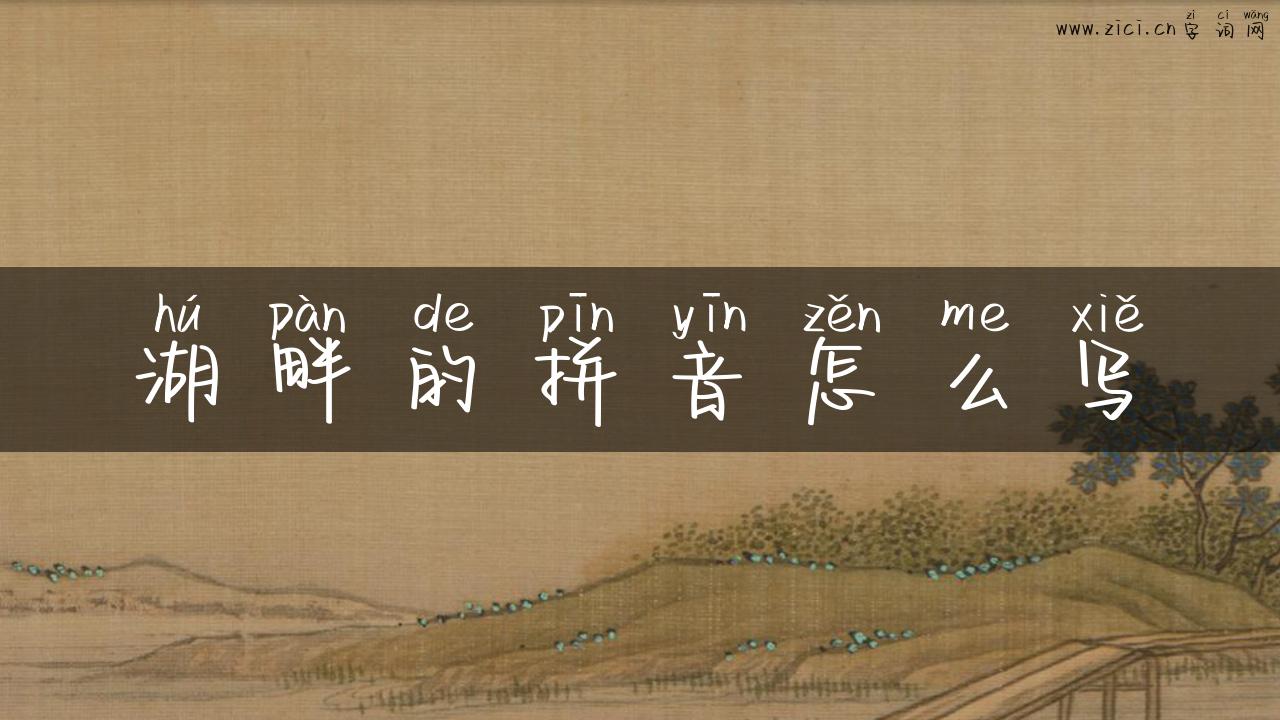 zì cí wǎng
www.zici.cn 字 词 网
hú pàn de pīn yīn zěn me xiě
湖 畔 的 拼 音 怎 么 写